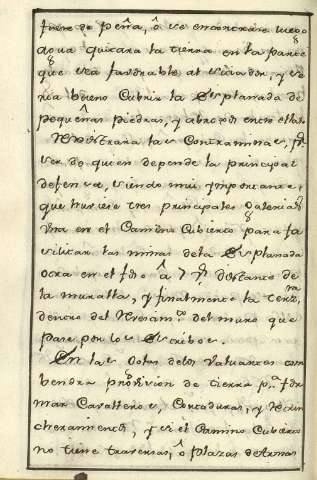 fuere de peña, ô se encontrare
agua quitara la tierra en la parte
que sea favorable al sitiador, y se
ria bueno Cubrir la Explanada de
pequeñas piedras, y abrojos entre ellas
las Contraminas, pr
ser de quien depende la principal
defensa, siendo mui importante
que huviese tres principales Galerias
Una en el Camino Cubierto para fa
cilitar las minas dela Explanada
otra en el foso â 7 ps distante de
la muralla, y finalmente la terza
dentro del Revestimto del muro que
pase por los Estribos.
En las Golas delos Valuartes com
bendra provision de tierra pa for
mar Cavalleros, Cortaduras, y Atrin
cheramientos, y si el Camino Cubierto
no tiene traversas, ô Plazas de Armas